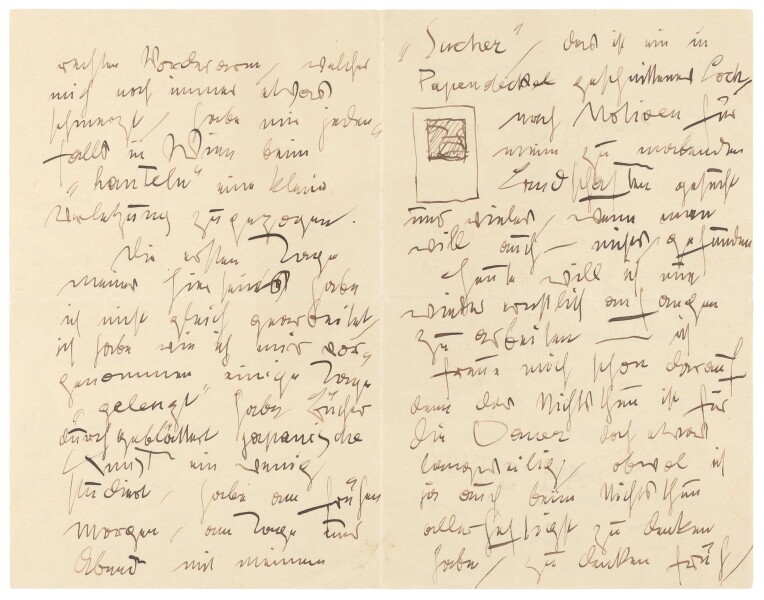 rechten Vorderarm, welcher
mich noch immer etwas
schmerzt, habe mir jeden=
falls in Wien beim
„hanteln" eine kleine
Verletzung zugezogen.
Die ersten Tage
meines Hierseins habe
ich nicht gleich gearbeitet,
ich habe wie ich mir vor=
genommen einige Tage
„gelengt" habe Bücher
durchgeblättert japanische
Kunst ein wenig
studiert, habe am frühen
Morgen, am Tage und
Abend mit meinem
„Sucher", das ist ein in
Papendeckel geschnittenes Loch,
nach Motiven für
meine zu malenden
Landschaften gesucht
und vieles, wenn man
will auch – nichts gefunden
Heute will ich nun
wieder ernstlich anfangen
zu arbeiten — ich
freue mich schon darauf
denn das Nichtsthun ist für
die Dauer doch etwas
langweilig, obwol ich
ja auch beim Nichtsthun
allerhest zu denken
habe, zu denken früh,